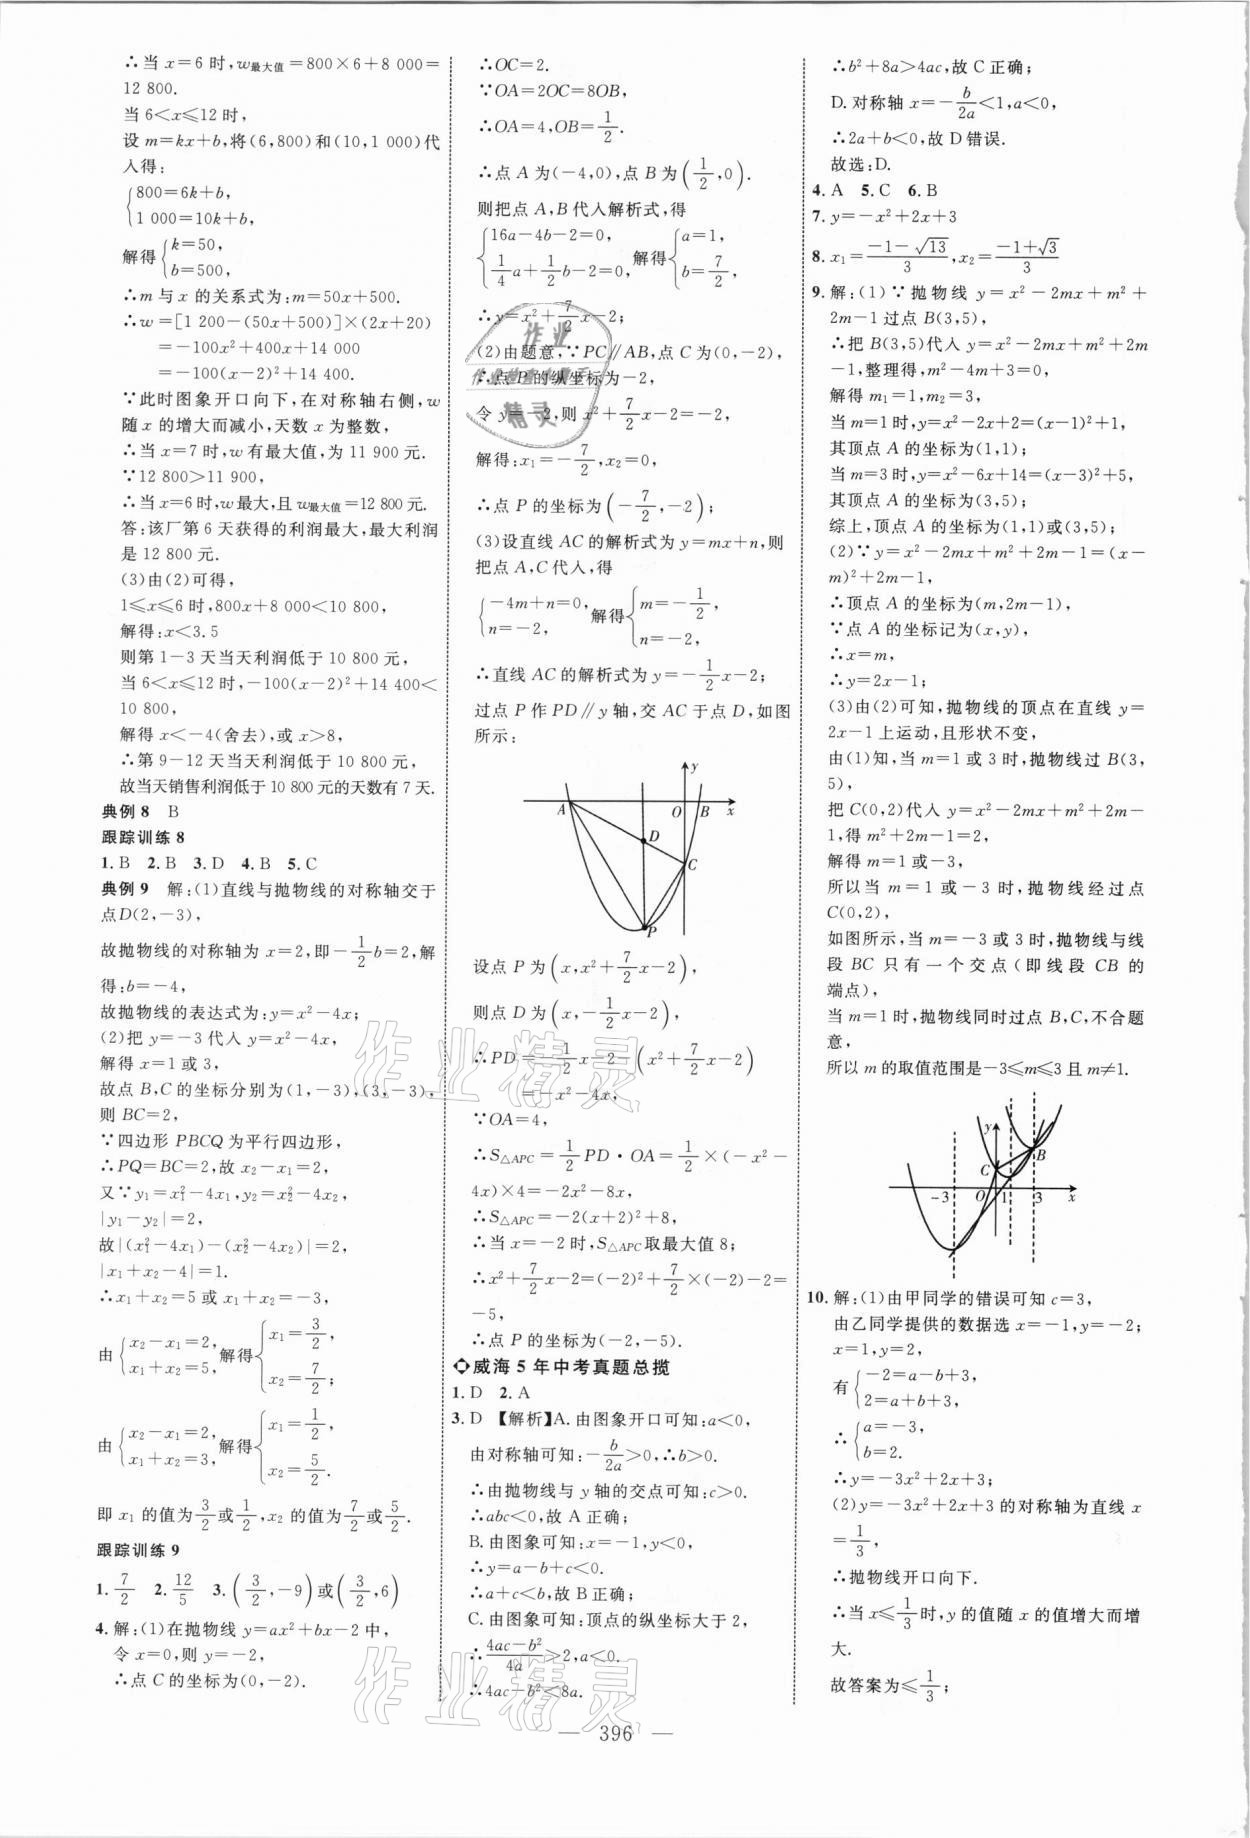 ∴当 x=6 时,w最大值=800×6+8 000=
12 800.
当 6<x≤12 时,
设 m=kx+b,将(6,800)和(10,1 000)代
入得:
{800=6k+b,
1 000=10k+b,
解得{k=50,
b=500,
∴m 与 x 的关系式为:m=50x+500.
∴w=[1 200-(50x+500)]×(2x+20)
=-100x²+400x+14 000
=-100(x-2)²+14 400.
∵此时图象开口向下,在对称轴右侧,w
随 x 的增大而减小,天数 x 为整数,
∴当 x=7 时,w 有最大值,为 11 900 元.
∵12 800>11 900,
∴当 x=6 时,w 最大,且 w最大值=12 800 元.
答:该厂第 6 天获得的利润最大,最大利润
是 12 800 元.
(3)由(2)可得,
1≤x≤6 时,800x+8 000<10 800,
解得:x<3.5
则第 1-3 天当天利润低于 10 800 元,
当 6<x≤12 时,-100(x-2)²+14 400<
10 800,
解得 x<-4(舍去),或 x>8,
∴第 9-12 天当天利润低于 10 800 元,
故当天销售利润低于 10 800 元的天数有 7 天.
典例 8 B
跟踪训练 8
1. B 2. B 3. D 4. B 5. C
典例 9 解:(1)直线与抛物线的对称轴交于
点D(2,-3),
故抛物线的对称轴为 x=2,即-1/2b=2,解
得:b=-4,
故抛物线的表达式为:y=x²-4x;
(2)把 y=-3 代入 y=x²-4x,
解得 x=1 或 3,
故点 B,C 的坐标分别为(1,-3),(3,-3),
则 BC=2,
∵四边形 PBCQ 为平行四边形,
∴PQ=BC=2,故 x₂-x₁=2,
又∵y₁=x₁²-4x₁,y₂=x₂²-4x₂,
|y₁-y₂|=2,
故|(x₁²-4x₁)-(x₂²-4x₂)|=2,
|x₁+x₂-4|=1.
∴x₁+x₂=5 或 x₁+x₂=-3,
由{x₂-x₁=2,
x₁+x₂=5,解得{x₁=3/2,
x₂=7/2;
由{x₂-x₁=2,
x₁+x₂=3,解得{x₁=1/2,
x₂=5/2.
即 x₁ 的值为3/2或1/2,x₂ 的值为7/2或5/2.
跟踪训练 9
1. 7/2 2. 12/5 3. (3/2,-9)或(3/2,6)
4. 解:(1)在抛物线 y=ax²+bx-2 中,
令 x=0,则 y=-2,
∴点 C 的坐标为(0,-2).
∴OC=2.
∵OA=2OC=8OB,
∴OA=4,OB=1/2.
∴点 A 为(-4,0),点 B 为(1/2,0).
则把点 A,B 代入解析式,得
{16a-4b-2=0,
1/4a+1/2b-2=0,解得{a=1,
b=7/2,
∴y=x²+7/2x-2;
(2)由题意,∵PC∥AB,点 C 为(0,-2),
∴点 P 的纵坐标为-2,
令 y=-2,则 x²+7/2x-2=-2,
解得:x₁=-7/2,x₂=0,
∴点 P 的坐标为(-7/2,-2);
(3)设直线 AC 的解析式为 y=mx+n,则
把点 A,C 代入,得
{-4m+n=0,
n=-2,解得{m=-1/2,
n=-2,
∴直线 AC 的解析式为 y=-1/2x-2;
过点 P 作 PD∥y 轴,交 AC 于点 D,如图
所示:
y
A O B x
D
C
P
设点 P 为(x,x²+7/2x-2),
则点 D 为(x,-1/2x-2),
∴PD=-1/2x-2-(x²+7/2x-2)
=-x²-4x,
∵OA=4,
∴S△APC=1/2PD·OA=1/2×(-x²-
4x)×4=-2x²-8x,
∴S△APC=-2(x+2)²+8,
∴当 x=-2 时,S△APC取最大值 8;
∴x²+7/2x-2=(-2)²+7/2×(-2)-2=
-5,
∴点 P 的坐标为(-2,-5).
威海 5 年中考真题总揽
1. D 2. A
3. D 【解析】A. 由图象开口可知:a<0,
由对称轴可知:-b/2a>0,∴b>0.
∴由抛物线与 y 轴的交点可知:c>0.
∴abc<0,故 A 正确;
B. 由图象可知:x=-1,y<0,
∴y=a-b+c<0,
∴a+c<b,故 B 正确;
C. 由图象可知:顶点的纵坐标大于 2,
∴4ac-b²/4a>2,a<0,
∴4ac-b²<8a.
∴b²+8a>4ac,故 C 正确;
D. 对称轴 x=-b/2a<1,a<0,
∴2a+b<0,故 D 错误.
故选:D.
4. A 5. C 6. B
7. y=-x²+2x+3
8. x₁=-1-√13/3,x₂=-1+√3/3
9. 解:(1)∵抛物线 y=x²-2mx+m²+
2m-1 过点 B(3,5),
∴把 B(3,5)代入 y=x²-2mx+m²+2m
-1,整理得,m²-4m+3=0,
解得 m₁=1,m₂=3,
当 m=1 时,y=x²-2x+2=(x-1)²+1,
其顶点 A 的坐标为(1,1);
当 m=3 时,y=x²-6x+14=(x-3)²+5,
其顶点 A 的坐标为(3,5);
综上,顶点 A 的坐标为(1,1)或(3,5);
(2)∵y=x²-2mx+m²+2m-1=(x-
m)²+2m-1,
∴顶点 A 的坐标为(m,2m-1),
∵点 A 的坐标记为(x,y),
∴x=m,
∴y=2x-1;
(3)由(2)可知,抛物线的顶点在直线 y=
2x-1 上运动,且形状不变,
由(1)知,当 m=1 或 3 时,抛物线过 B(3,
5),
把 C(0,2)代入 y=x²-2mx+m²+2m-
1,得 m²+2m-1=2,
解得 m=1 或-3,
所以当 m=1 或-3 时,抛物线经过点
C(0,2),
如图所示,当 m=-3 或 3 时,抛物线与线
段 BC 只有一个交点(即线段 CB 的
端点),
当 m=1 时,抛物线同时过点 B,C,不合题
意,
所以 m 的取值范围是-3≤m≤3 且 m≠1.
y
B
C
-3 O 1 3 x
10. 解:(1)由甲同学的错误可知 c=3,
由乙同学提供的数据选 x=-1,y=-2;
x=1,y=2,
有{-2=a-b+3,
2=a+b+3,
∴{a=-3,
b=2.
∴y=-3x²+2x+3;
(2)y=-3x²+2x+3 的对称轴为直线 x
=1/3,
∴抛物线开口向下.
∴当 x≤1/3时,y 的值随 x 的值增大而增
大.
故答案为≤1/3;
— 396 —
作业精灵
作业精灵
作业
精灵